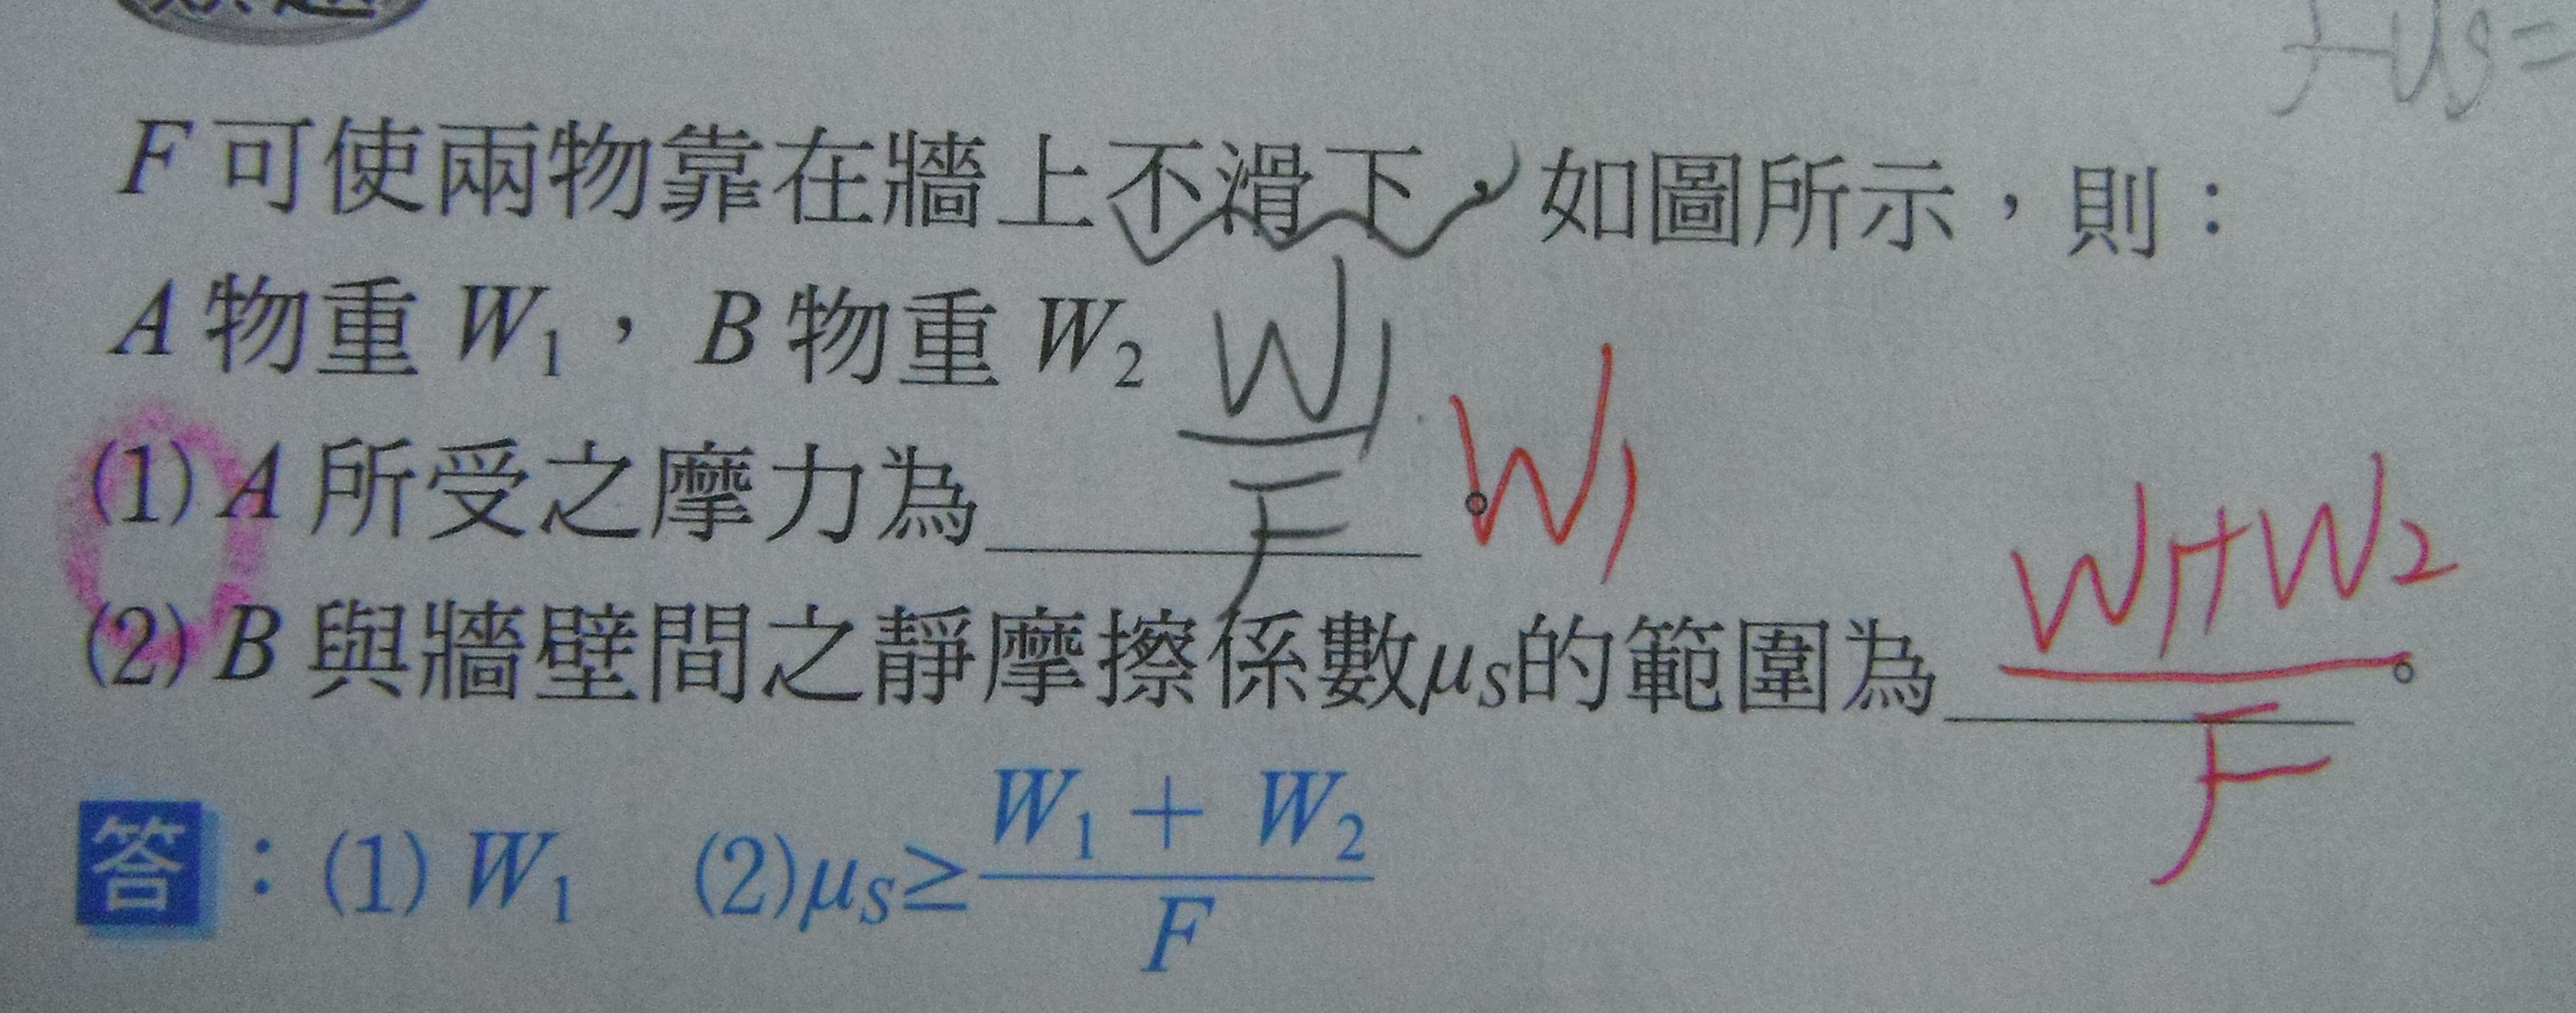 f=μs=
F可使兩物靠在牆上不滑下，如圖所示，則：
A物重W₁，B物重W₂
(1) A所受之摩力為 W₁/F 。W₁
(2) B與牆壁間之靜摩擦係數μs的範圍為 W₁+W₂/F 。
答：(1) W₁ (2)μs≥W₁ + W₂/F